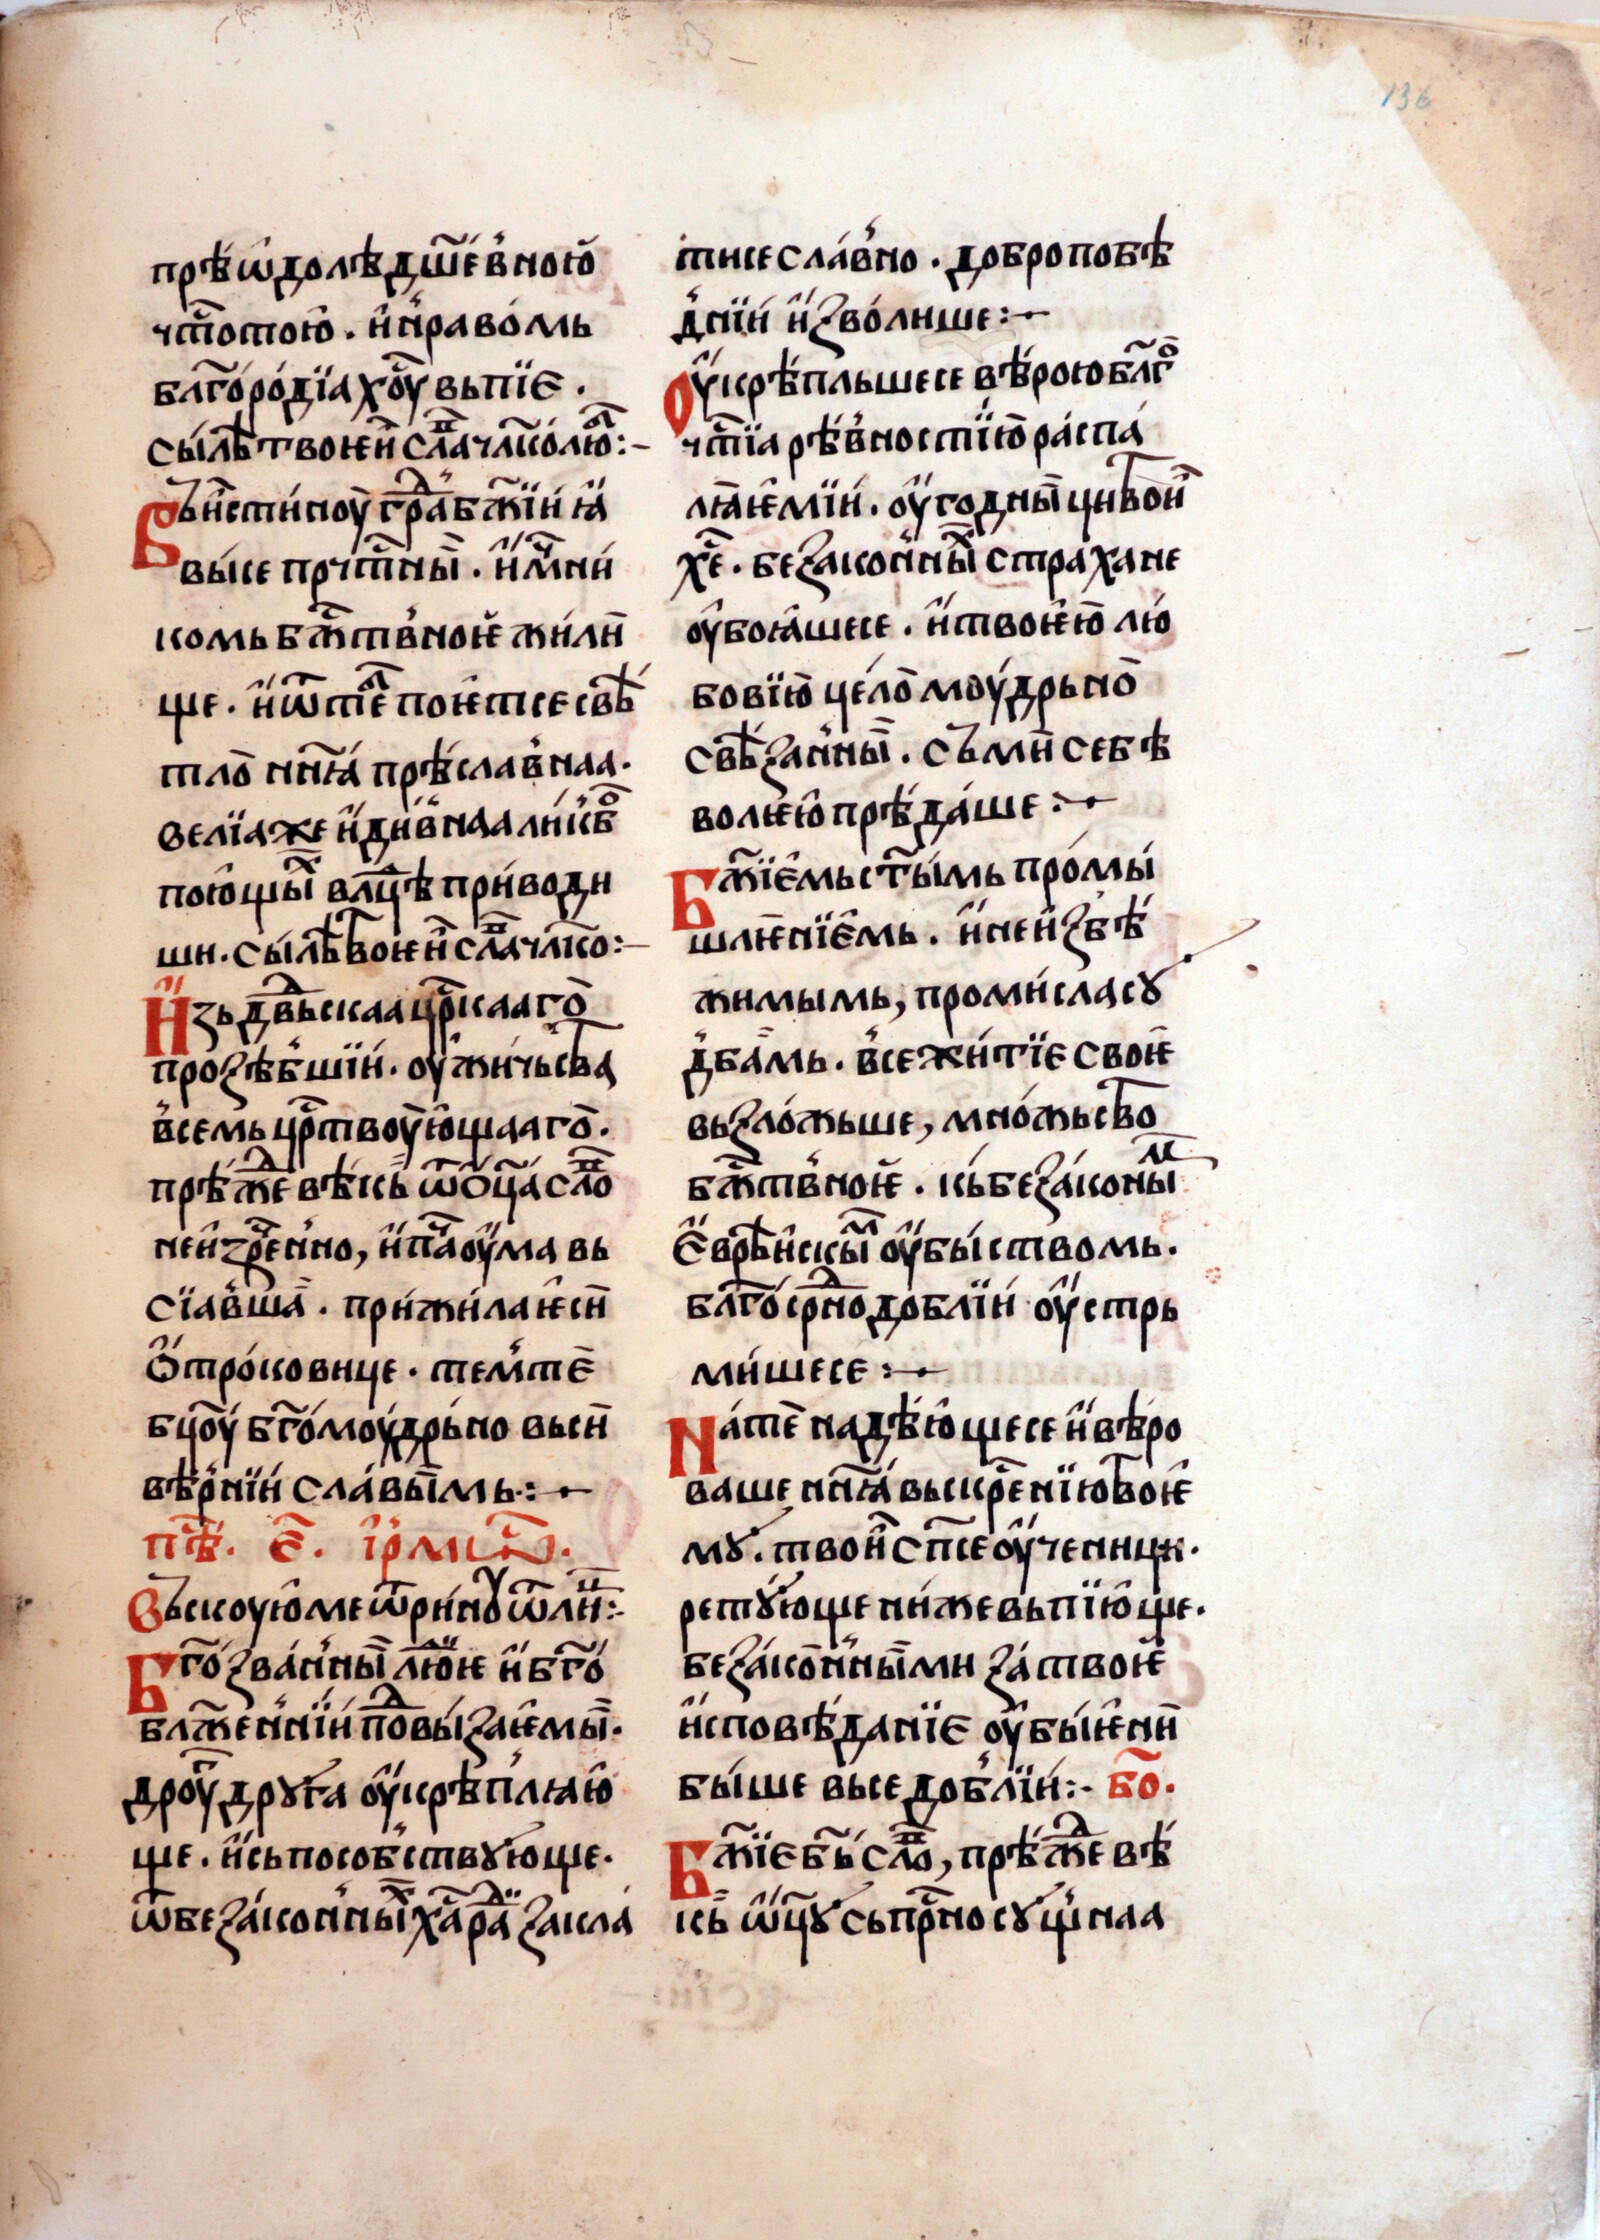 136
прѣѡ̑долѣд҃шев̾ною̑
чт҃отою̑. и҆н̾равомь
бл҃горѡдїа хо҃у вьпїє.
сы́лѣ твоѥи҆ сла҃ чл҃колю:-
Въи҆стиноу гра҃ бж҃їи ꙗ҆
высе прчт҃ны. и҆м҃ни
комь бж҃тв̾ноѥ жили
ще. и҆ѿтеⷧ поѥтсе свѣ
тло нн҃ꙗ прѣславнаа.
велїаже и҆дивнаа ликѡв
пою̑щыⷯ влⷣцѣ приводи
ши. сы́лѣтвоѥи҆ сла҃ чл҃ко:-
И҆зь дв҃ьскаа црⷭ҇каа го
прозѣбшїи. ѹ҆жичьства
в̾семь црⷭ҇твоую̑щааго.
прѣж҃е вѣкь ѿѡц҃а сло҃
неи҆зреⷱн̾но, и҆пл҃а ѹ҆ма вь
сїав̾ша. прижилаѥси
Ѻ҆троковице. темⷤте
бцⷣоу бг҃омоудрьно вьси
вѣр̾нїи славымь:-
пѣⷭ. є҃. і҆рмⷭ.
Въскоую̑ме ѿрину ѿлиⷰ:-
Бг҃озван̾ны люⷣїе и҆бг҃о
блж҃ен̾нїи поⷣвызаѥмы.
дроугдруга ѹ҆крѣплꙗю̑
ще. и҆сьпособ̾ствующе.
ѿбезакон̾ныⷯ хаⷭ раⷣ закла
тисеслав̾но. добропобѣ
д̾нїи и҆зволише:-
Ѹ҆крѣпльшесе вѣроюблг҃о
чтⷭ҇їа рѣв̾ностїю распа
лꙗѥмїи. ѹ҆годны цитвои
хе҃. безакон̾ныⷯ страхане
ѹ҆боꙗшесе. и҆твоѥю лю
бовїю цѣломоудрьно
свѣзан̾ны. съми себѣ
волѥю̑ прѣдаше:-
Бж҃їємь ст҃ымь промы
шлѥнїємь. и҆неи҆збѣ
жимымь, промисласу
д̾бамь. в̾се житїе своѥ
вьзложьше, множьство
бж҃тв̾ноѥ. кьбезаконыⷨ
Є҆врѣискыⷨ ѹ҆быствомь.
блг҃осрⷣно доблїи ѹ҆стрь
мишесе:-
На те надѣю̑щесе и҆вѣро
ваше нн҃ꙗ вьскрⷭ҇енїютвоѥ
му. твои сп҃се ѹ҆ченици.
ретующе ниже вьпїюще.
безакон̾ными за твоѥ
и҆сповѣданїє ѹ҆быѥни
быше высе доблїи:- бо҃.
Бж҃їе бы сло҃, прѣж҃е вѣ
кь ѿц҃у сьпрⷭ҇носущ̾наа